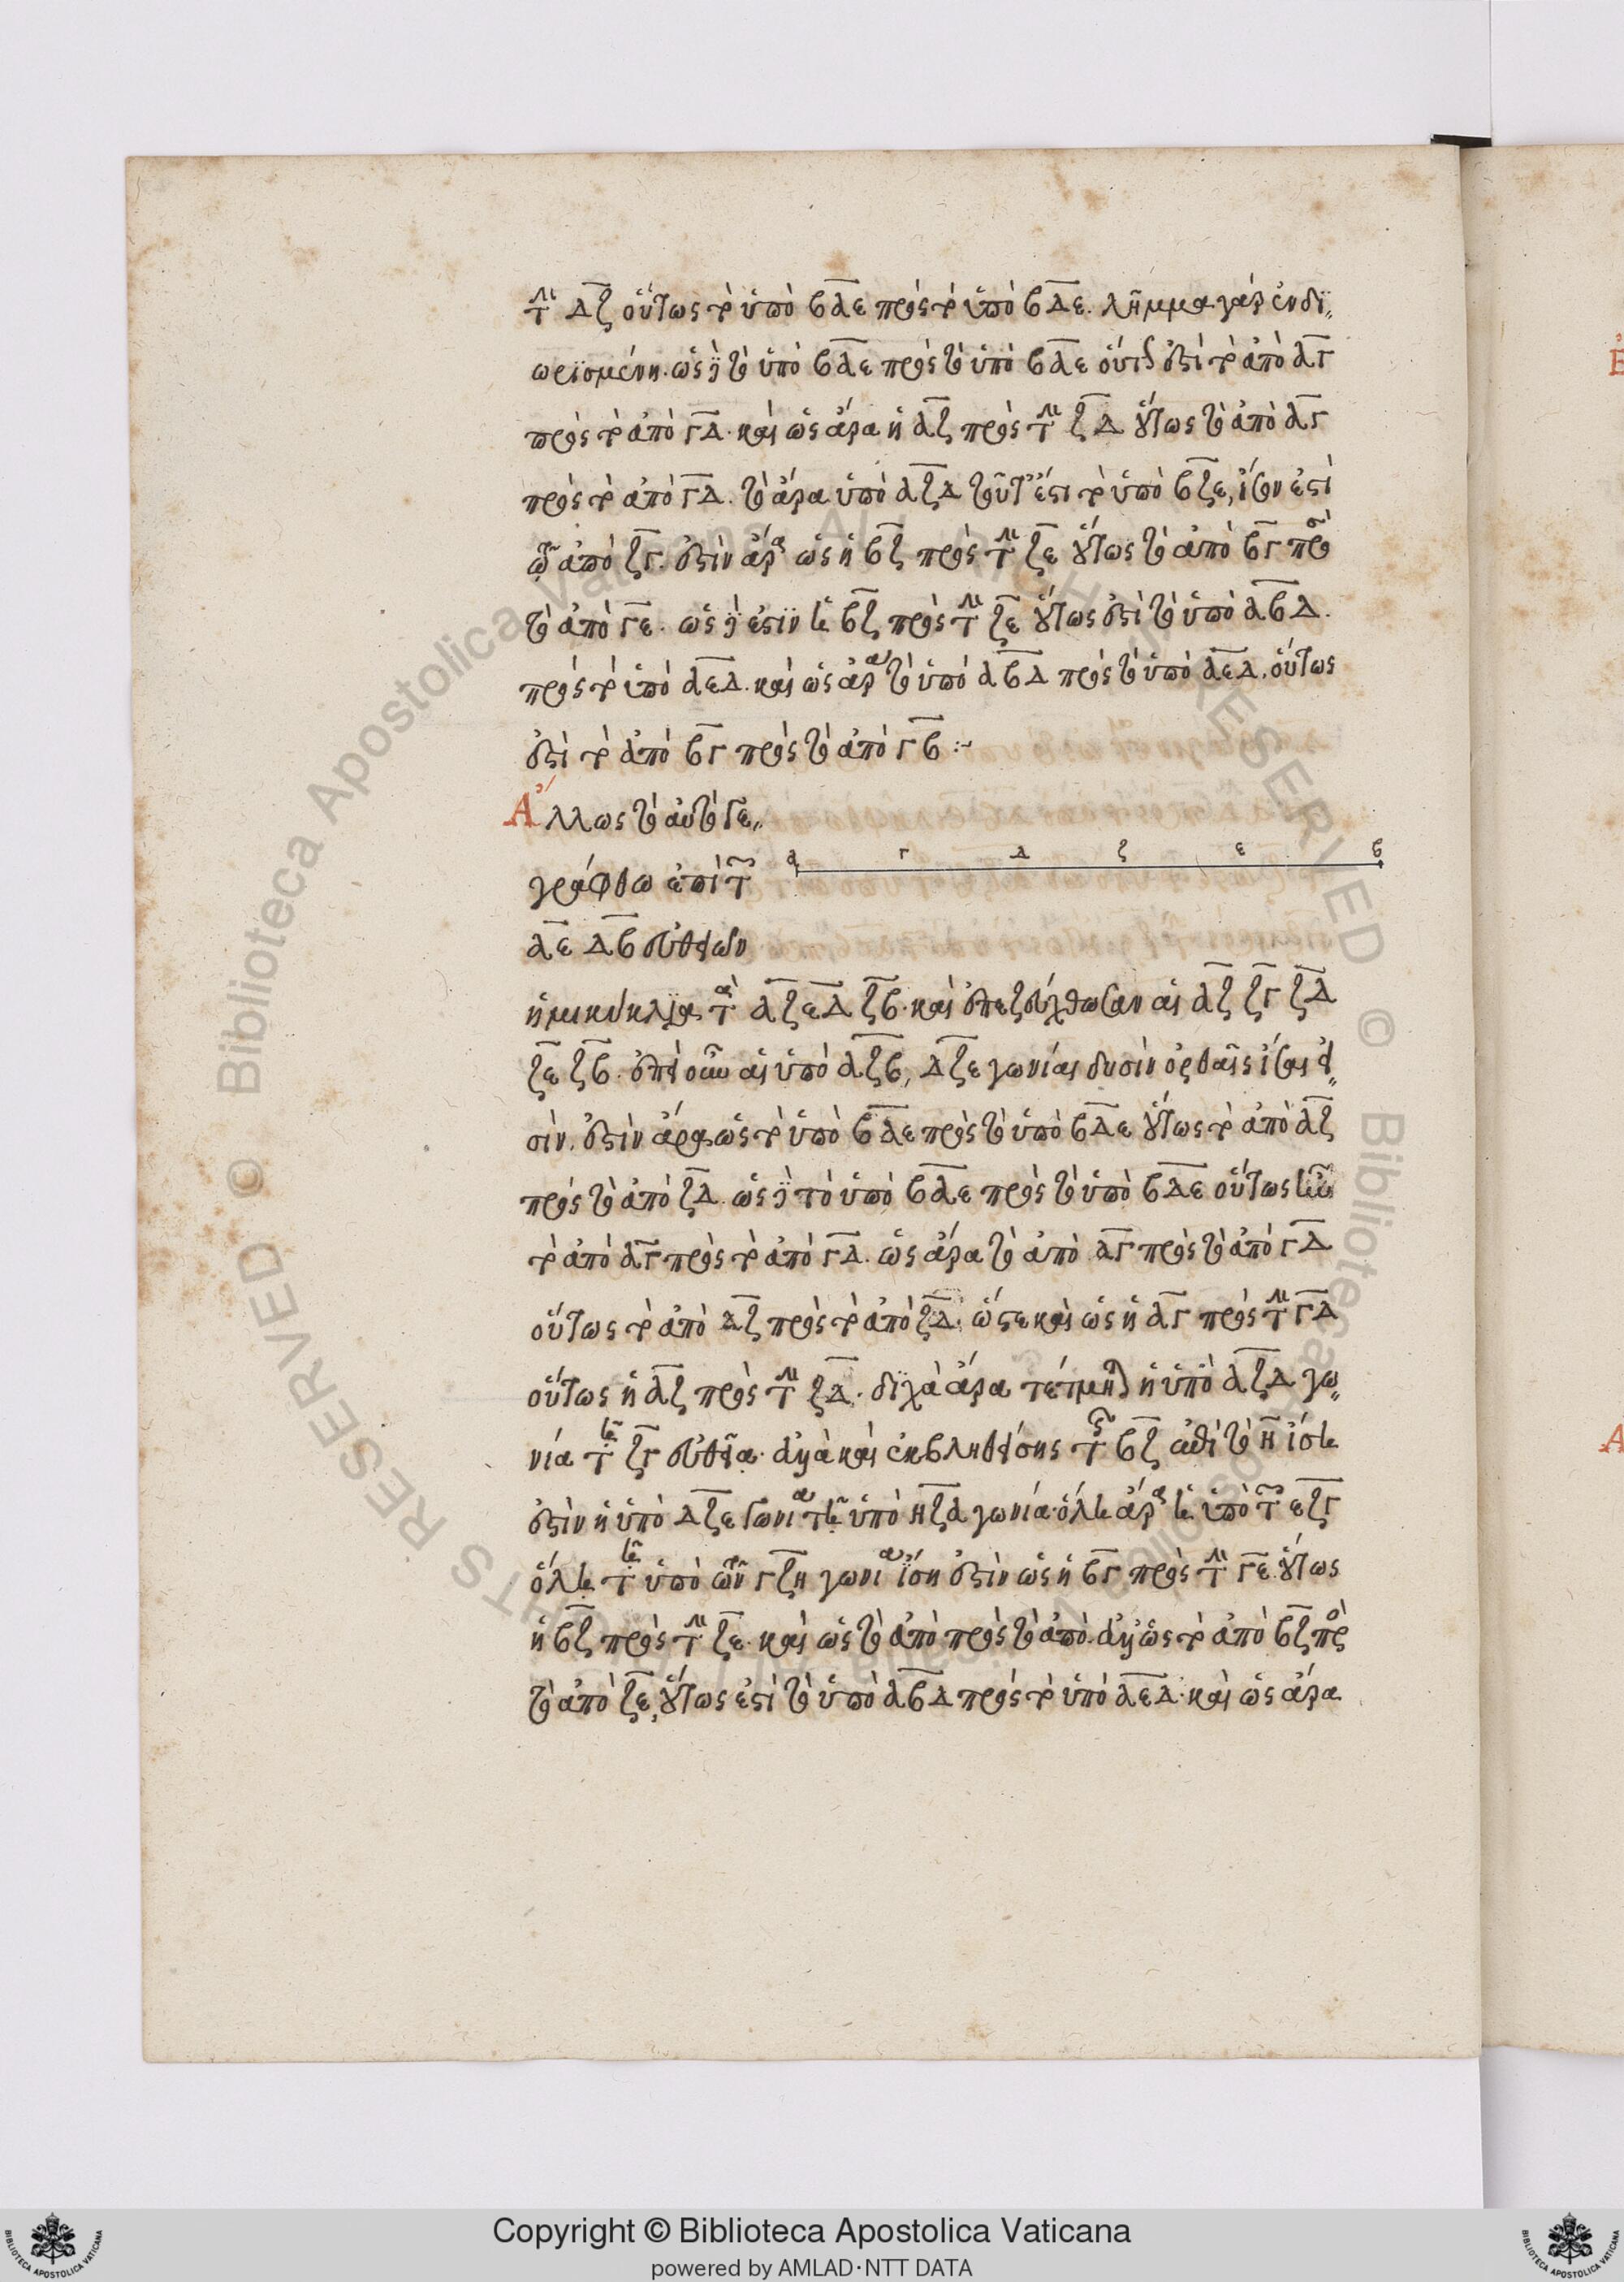 τὴν ΔΖ οὕτως τὸ ὑπὸ ΒΑΕ πρὸς τὸ ὑπὸ ΒΔΕ. λῆμμα γὰρ ἐν δϊ
ωρϊσμένη. ὡς δὲ τὸ ὑπὸ ΒΑΕ πρὸς τὸ ὑπὸ ΒΔΕ οὕτως ἐστὶ τὸ ἀπὸ ΑΓ
πρὸς τὸ ἀπὸ ΓΔ. καὶ ὡς ἄρα ἡ ΑΖ πρὸς τὴν ΖΔ οὕτως τὸ ἀπὸ ΑΓ
πρὸς τὸ ἀπὸ ΓΔ. τὸ ἄρα ὑπὸ ΑΖΔ τουτέστι τὸ ὑπὸ ΒΖΕ, ἴσον ἐστὶ
τῷ ἀπὸ ΖΓ. ἐστὶν ἄρα ὡς ἡ ΒΖ πρὸς τὴν ΖΕ οὕτως τὸ ἀπὸ ΒΓ πρὸς
τὸ ἀπὸ ΓΕ. ὡς δὲ ἐστιν ἡ ΒΖ πρὸς τὴν ΖΕ οὕτως ἐστὶ τὸ ὑπὸ ΑΒΔ.
πρὸς τὸ ὑπὸ ΑΕΔ. καὶ ὡς ἄρα τὸ ὑπὸ ΑΒΔ πρὸς τὸ ὑπὸ ΑΕΔ, οὕτως
ἐστὶ τὸ ἀπὸ ΒΓ πρὸς τὸ ἀπὸ ΓΒ :~
Ἄλλως τὸ αὐτὸ γε
γράφθω ἐπὶ τῶν
α γ Δ ζ ε β
ΑΕ ΔΒ εὐθειῶν
ἡμικύκλϊα τὰ ΑΖΕ ΔΖΒ. καὶ ἐπεζεύχθωσαν αἱ ΑΖ ΖΓ ΖΔ
ΖΕ ΖΒ. ἐπεὶ οὖν αἱ ὑπὸ ΑΖΒ, ΔΖΕ γωνίαι δυσὶν ὀρθαῖς ἴσαι εἰ
σίν. ἐστὶν ἄρα ὡς τὸ ὑπὸ ΒΑΕ πρὸς τὸ ὑπὸ ΒΔΕ οὕτως τὸ ἀπὸ ΑΖ
πρὸς τὸ ἀπὸ ΖΔ. ὡς δὲ τὸ ὑπὸ ΒΑΕ πρὸς τὸ ὑπὸ ΒΔΕ οὕτως
τὸ ἀπὸ ΑΓ πρὸς τὸ ἀπὸ ΓΔ. ὡς ἄρα τὸ ἀπὸ ΑΓ πρὸς τὸ ἀπὸ ΓΔ
οὕτως τὸ ἀπὸ ΑΖ πρὸς τὸ ἀπὸ ΖΔ. ὥστε καὶ ὡς ἡ ΑΓ πρὸς τὴν ΓΔ
οὕτως ἡ ΑΖ πρὸς τὴν ΖΔ. δϊχὰ ἄρα τέτμηται ἡ ὑπὸ ΑΖΔ γω
νία τῇ ΖΓ εὐθεῖα. ἀλλὰ καὶ ἐκβληθείσης τῆς ΒΖ ἐπὶ τὸ Η ἴση
ἐστὶν ἡ ὑπὸ ΔΖΕ γωνία τῇ ὑπὸ ΗΖΑ γωνία. ὅλη ἄρα ἡ ὑπὸ τῶν ΕΖΓ
ὅλη τῇ ὑπὸ τῶν ΓΖΗ γωνία ἴση ἐστὶν ὡς ἡ ΒΓ πρὸς τὴν ΓΕ. οὕτως
ἡ ΒΖ πρὸς τὴν ΖΕ. καὶ ὡς τὸ ἀπὸ πρὸς τὸ ἀπὸ. ἀλλ' ὡς τὸ ἀπὸ ΒΖ πρὸς
τὸ ἀπὸ ΖΕ, οὕτως ἐστὶ τὸ ὑπὸ ΑΒΔ πρὸς τὸ ὑπὸ ΑΕΔ. καὶ ὡς ἄρα
Copyright © Biblioteca Apostolica Vaticana
powered by AMLAD·NTT DATA